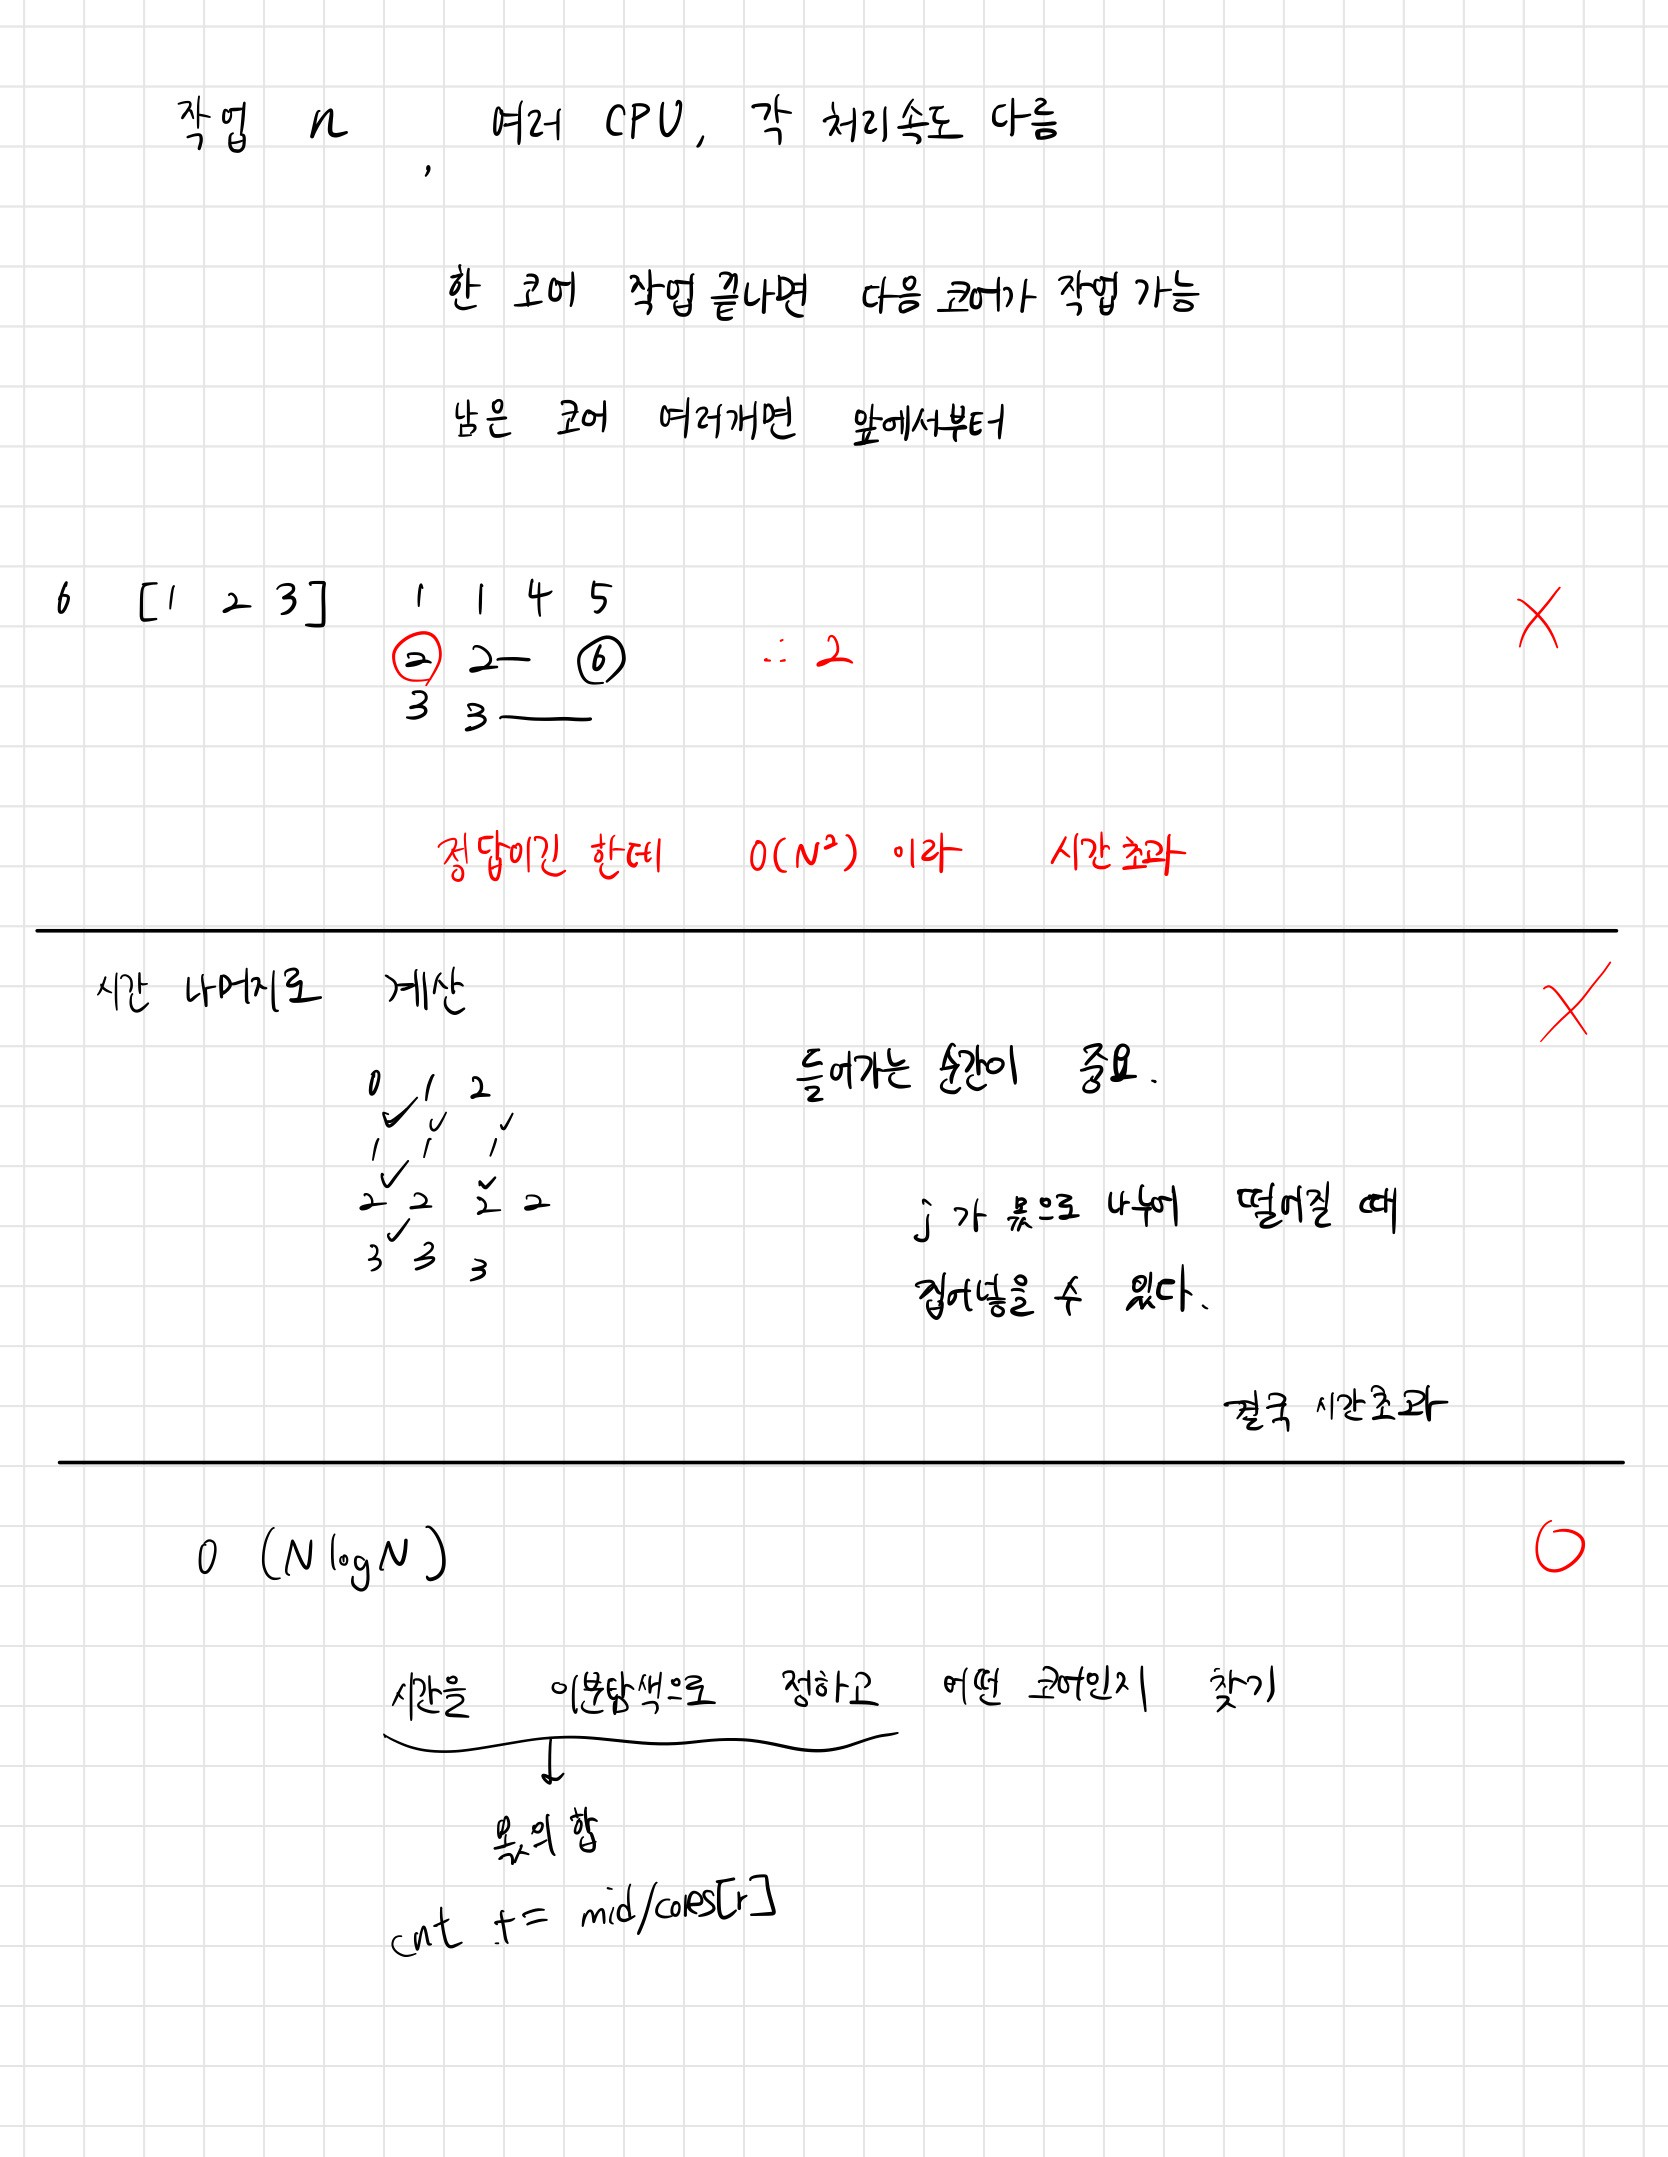 작업 n , 여러 CPU, 각 처리속도 다름
한 코어 작업 끝나면 다음 코어가 작업 가능
남은 코어 여러개면 앞에서부터
6 [1 2 3] 1 1 4 5
2 2 6 ∴ 2
3 3
X
정답이긴 한데 O(N²) 이라 시간초과
시간 나머지로 계산
X
들어가는 순간이 중요.
0 1 2
1 1 1
2 2 2 2
3 3 3
j 가 몫으로 나누어 떨어질 때
집어넣을 수 있다.
결국 시간초과
O (NlogN)
O
시간을 이분탐색으로 정하고 어떤 코어인지 찾기
몫의 합
cnt += mid/cores[r]